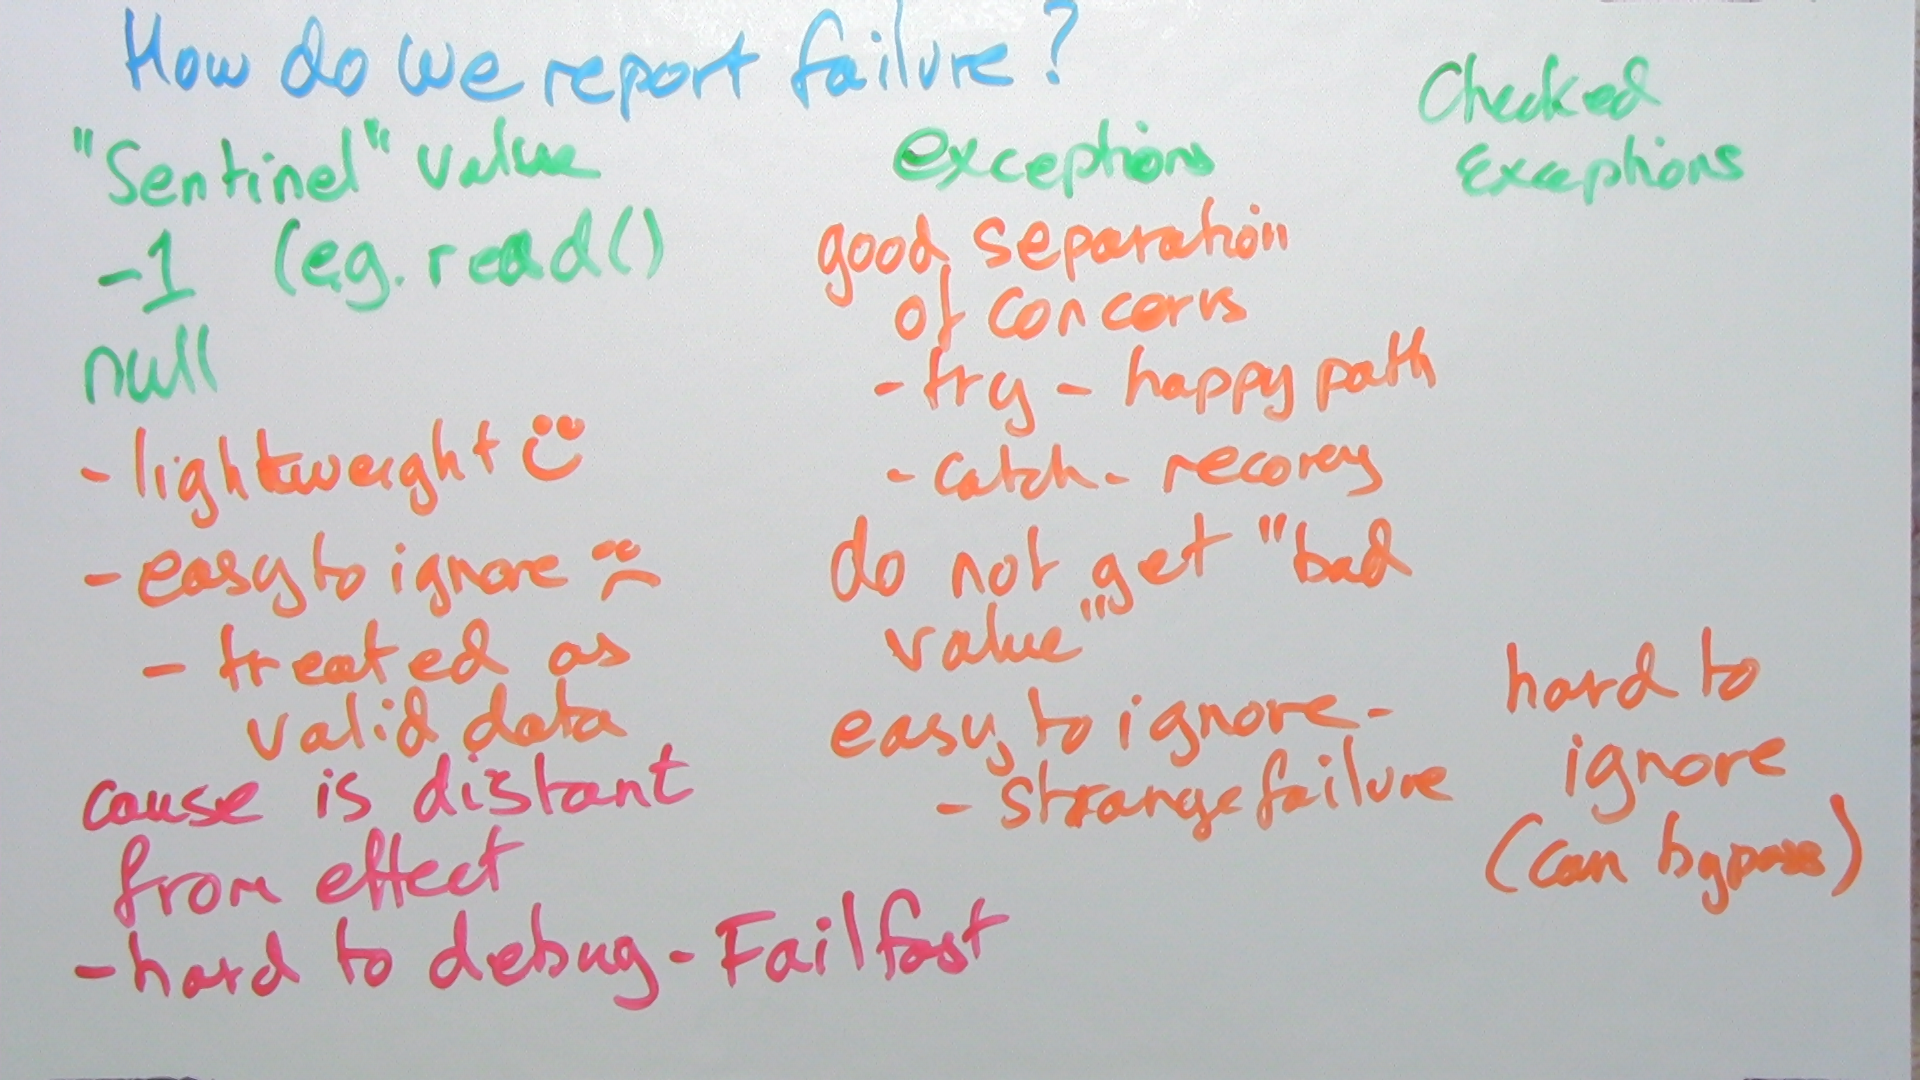 How do we report failure?
"Sentinel" value
-1 (e.g. read()
null
- lightweight
- easy to ignore
- treated as
valid data
cause is distant
from effect
- hard to debug - Fail fast
exceptions
good separation
of concerns
- try - happy path
- catch - recovery
do not get "bad
value"
easy to ignore -
- strange failure
Checked
Exceptions
hard to
ignore
(can bypass)